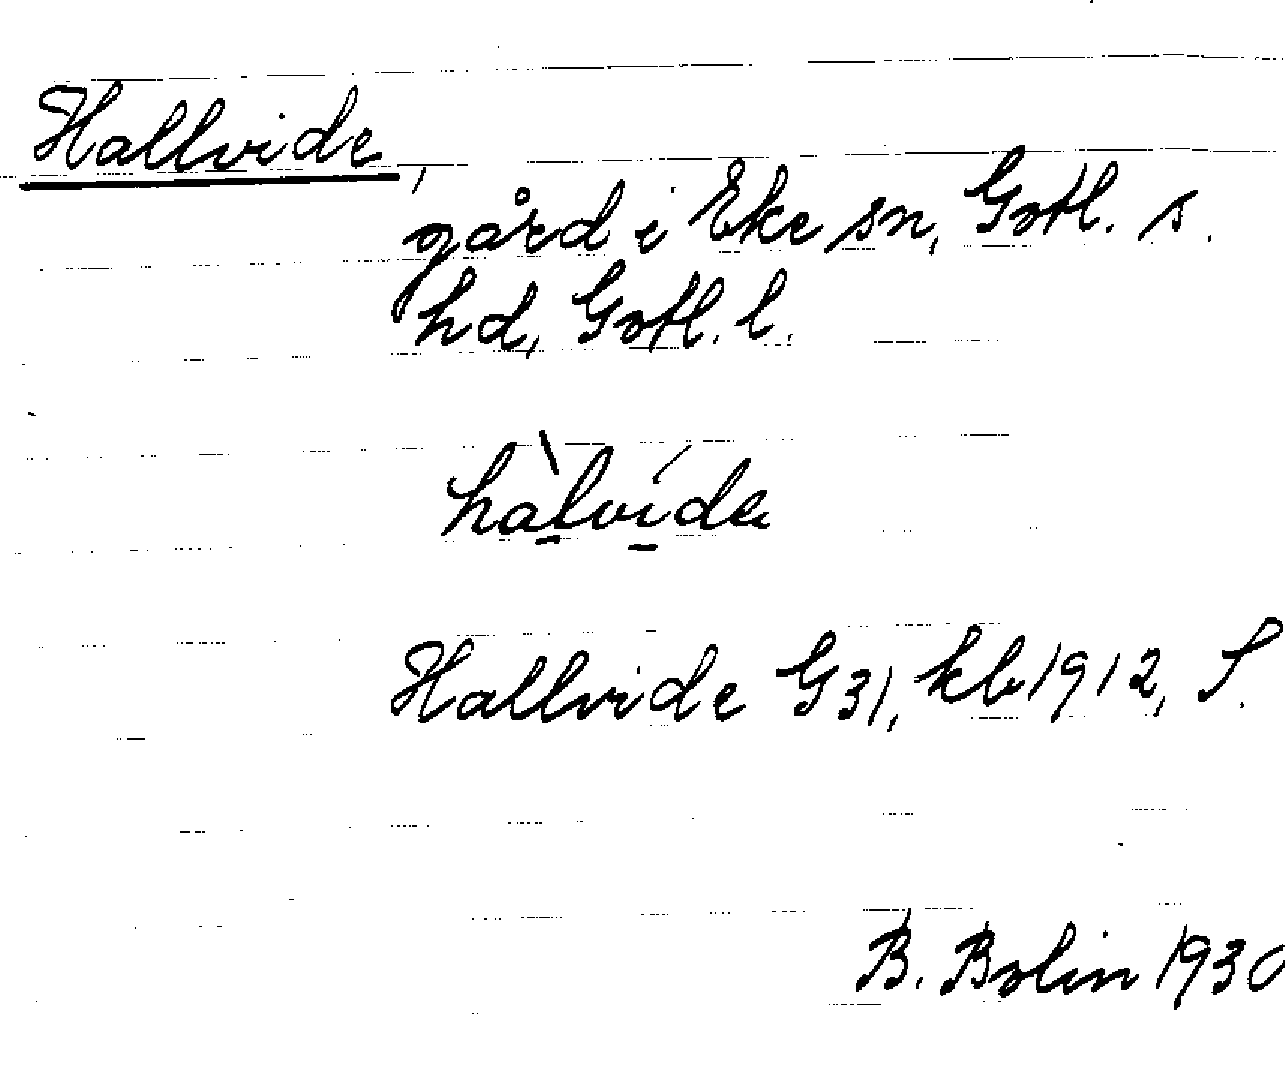 Hallvide,
gård i Eke sn, Gotl. s.
hd, Gotl. l.
hàlvída
Hallvide G31, kb 1912, S.
B. Bolin 1930